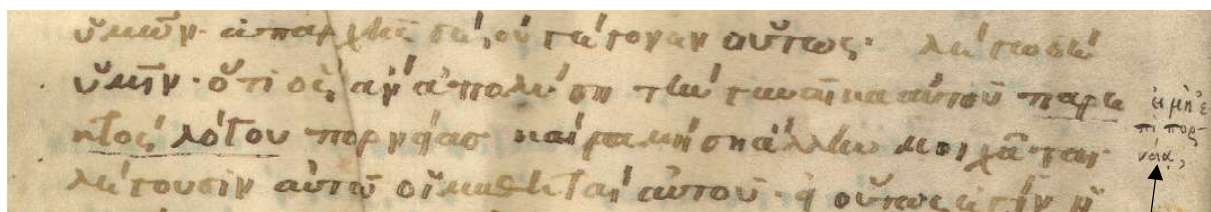 ὑμῶν· ἀπαρχῆς δὲ, οὐ γέγονεν οὕτως· λέγω δὲ
ὑμῖν· ὅτι ὃς ἂν ἀπολύση τὴν γυναῖκα αὐτοῦ παρε
κτὸς λόγου πορνείας καὶ γαμήση ἄλλην μοιχᾶται·
λέγουσιν αὐτῶ οἱ μαθηταὶ αὐτοῦ· εἰ οὕτως ἐστὶν ἡ
εἰ μὴ ἐ
πὶ πορ-
νείᾳ,